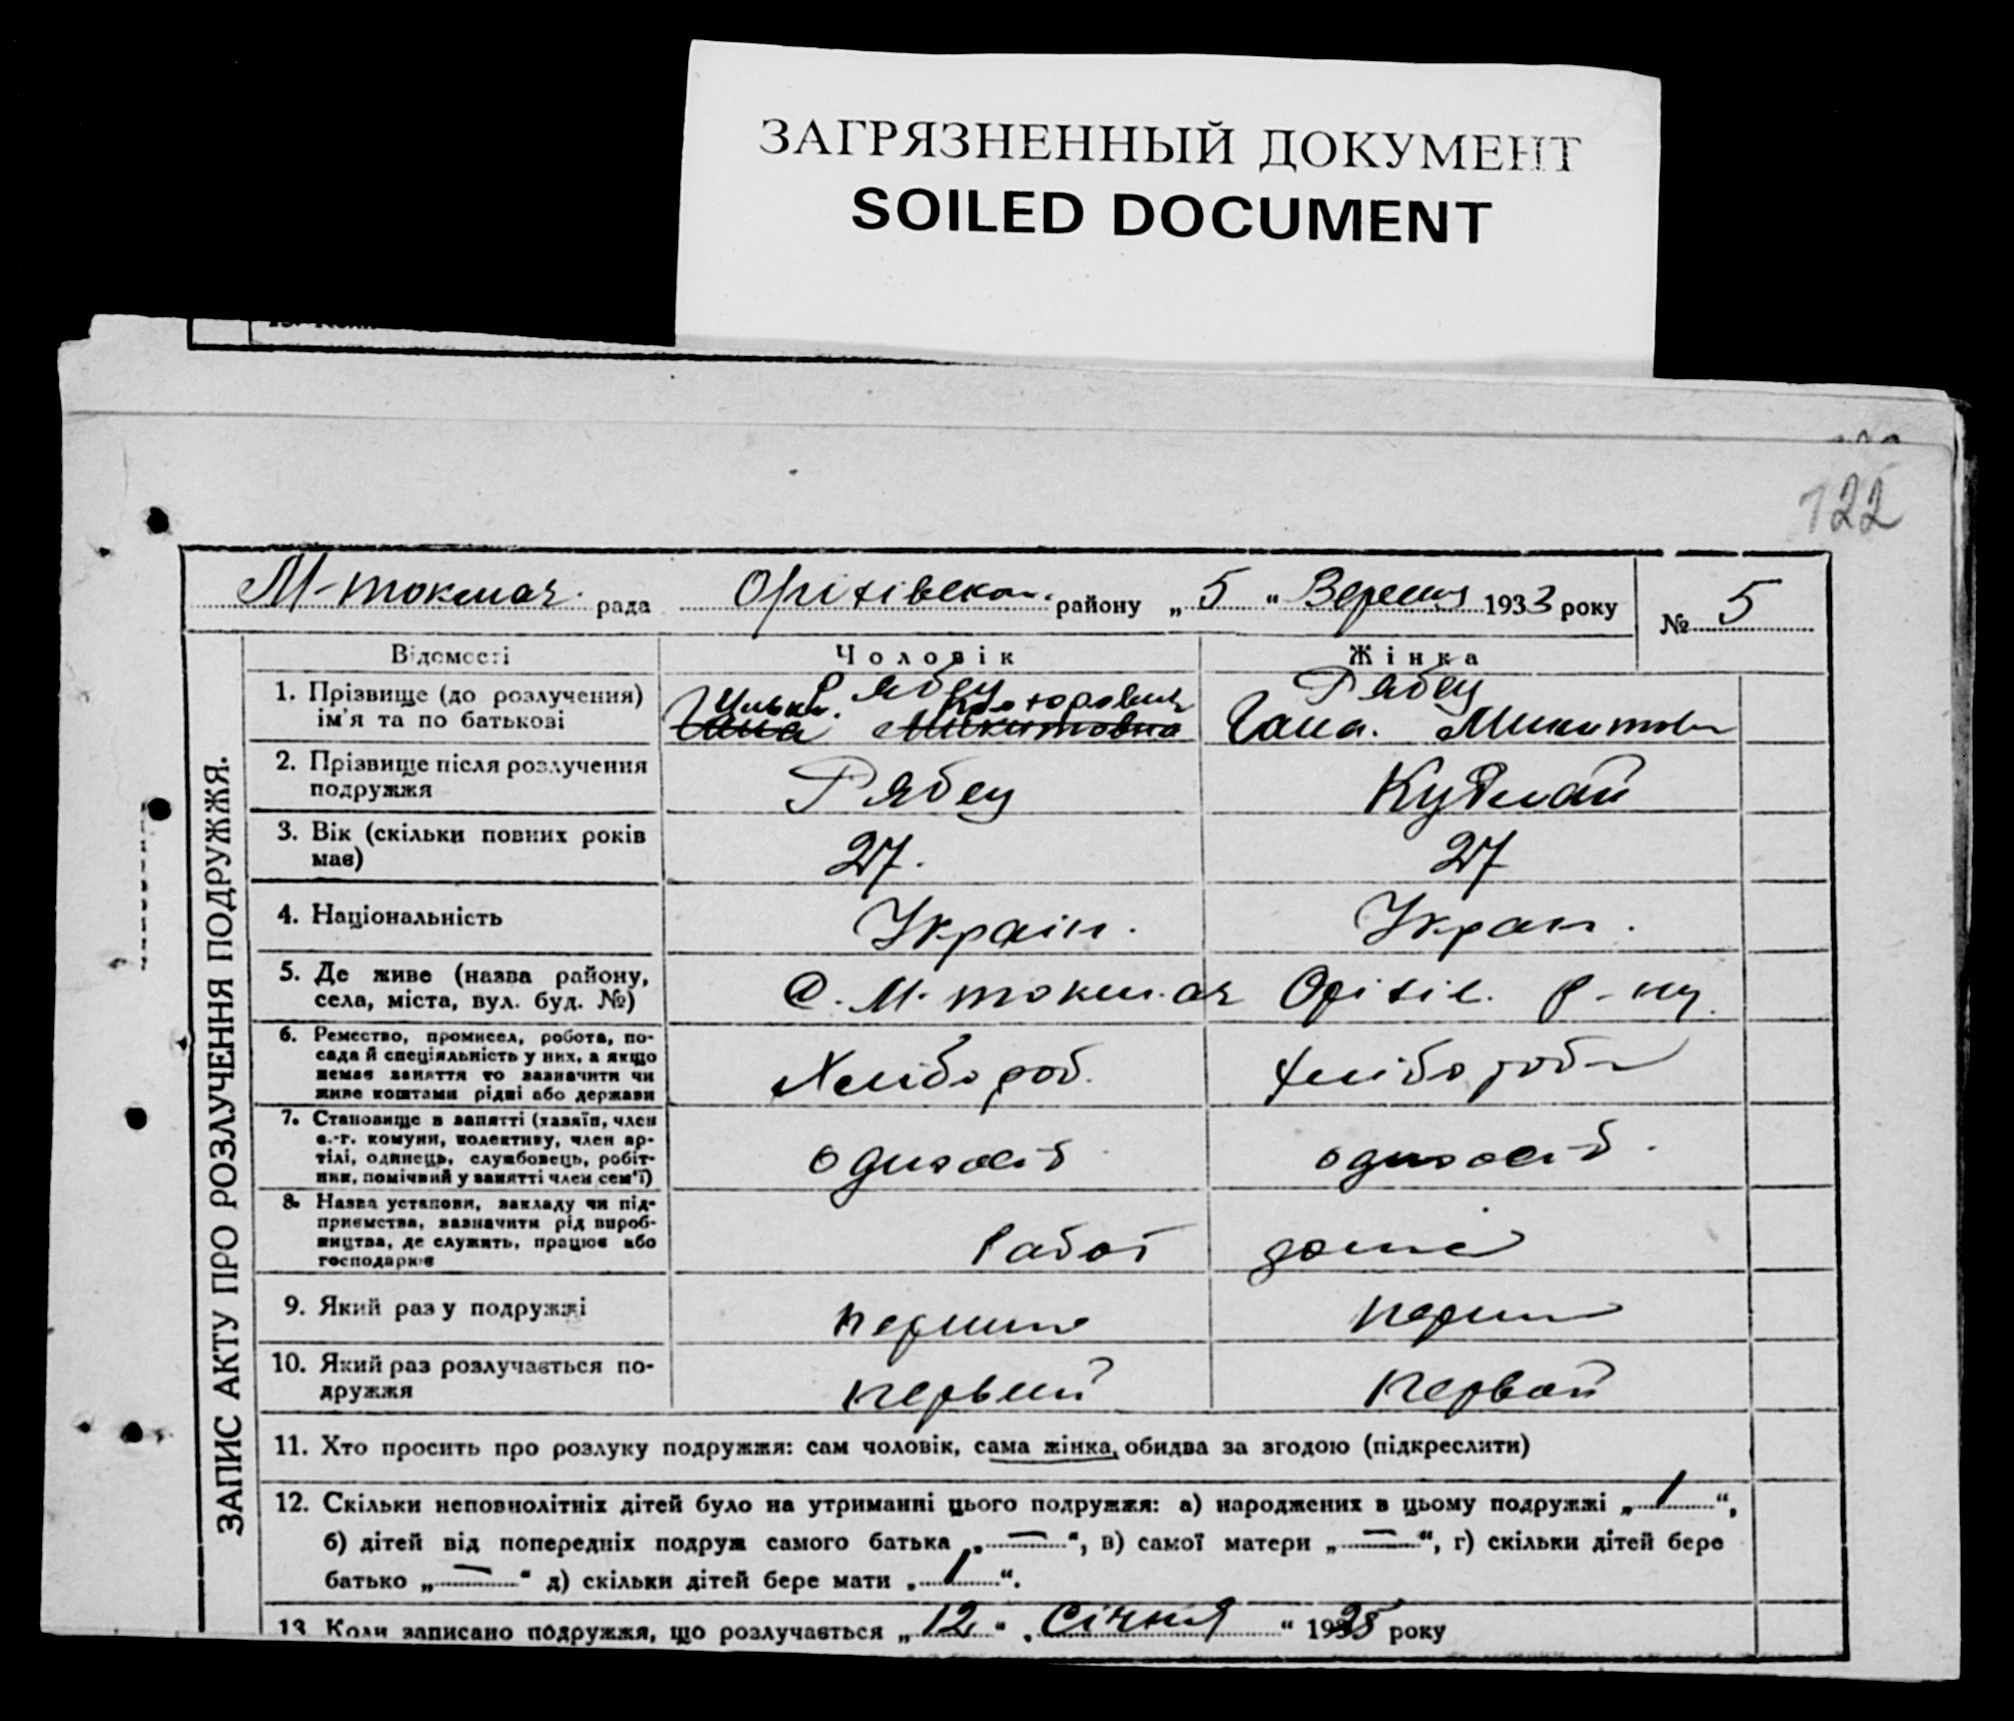 ЗАГРЯЗНЕННЫЙ ДОКУМЕНТ
SOILED DOCUMENT
122
М-токмач. рада Оріхівськ. району „5“ Вересня 1933 року № 5
ЗАПИС АКТУ ПРО РОЗЛУЧЕННЯ ПОДРУЖЖЯ.
Відомості Чоловік Жінка
1. Прізвище (до розлучення) Рябец Рябец
ім'я та по батькові Гана Микитовна Гана. Микитовн
2. Прізвище після розлучення
подружжя Рябец Кудлай
3. Вік (скільки повних років
має) 27. 27
4. Національність Україн. Украін.
5. Де живе (назва району,
села, міста, вул. буд. №) С. М. токмач Оріхів. р-ну.
6. Ремество, промисел, робота, по-
сада й спеціяльність у них, а якщо
немає заняття то зазначити чи
живе коштами рідні або держави Хлібороб. Хлібороб
7. Становище в занятті (хазяїн, член
с.-г. комуни, колективу, член ар-
тілі, одинець, службовець, робіт-
ник, помічний у занятті член сем'ї) одноосіб одноосіб.
8. Назва установи, закладу чи під-
приємства, зазначити рід вироб-
ництва, де служить, працює або
господарює Работ дома
9. Який раз у подружжі перший перший
10. Який раз розлучається по-
дружжя первий первой
11. Хто просить про розлуку подружжя: сам чоловік, сама жінка, обидва за згодою (підкреслити)
12. Скільки неповнолітніх дітей було на утриманні цього подружжя: а) народжених в цьому подружжі „1“,
б) дітей від попередніх подруж самого батька „—“, в) самої матери „—“, г) скільки дітей бере
батько „—“ д) скільки дітей бере мати „1“.
13. Коли записано подружжя, що розлучається „12“ „Січня“ 1925 року